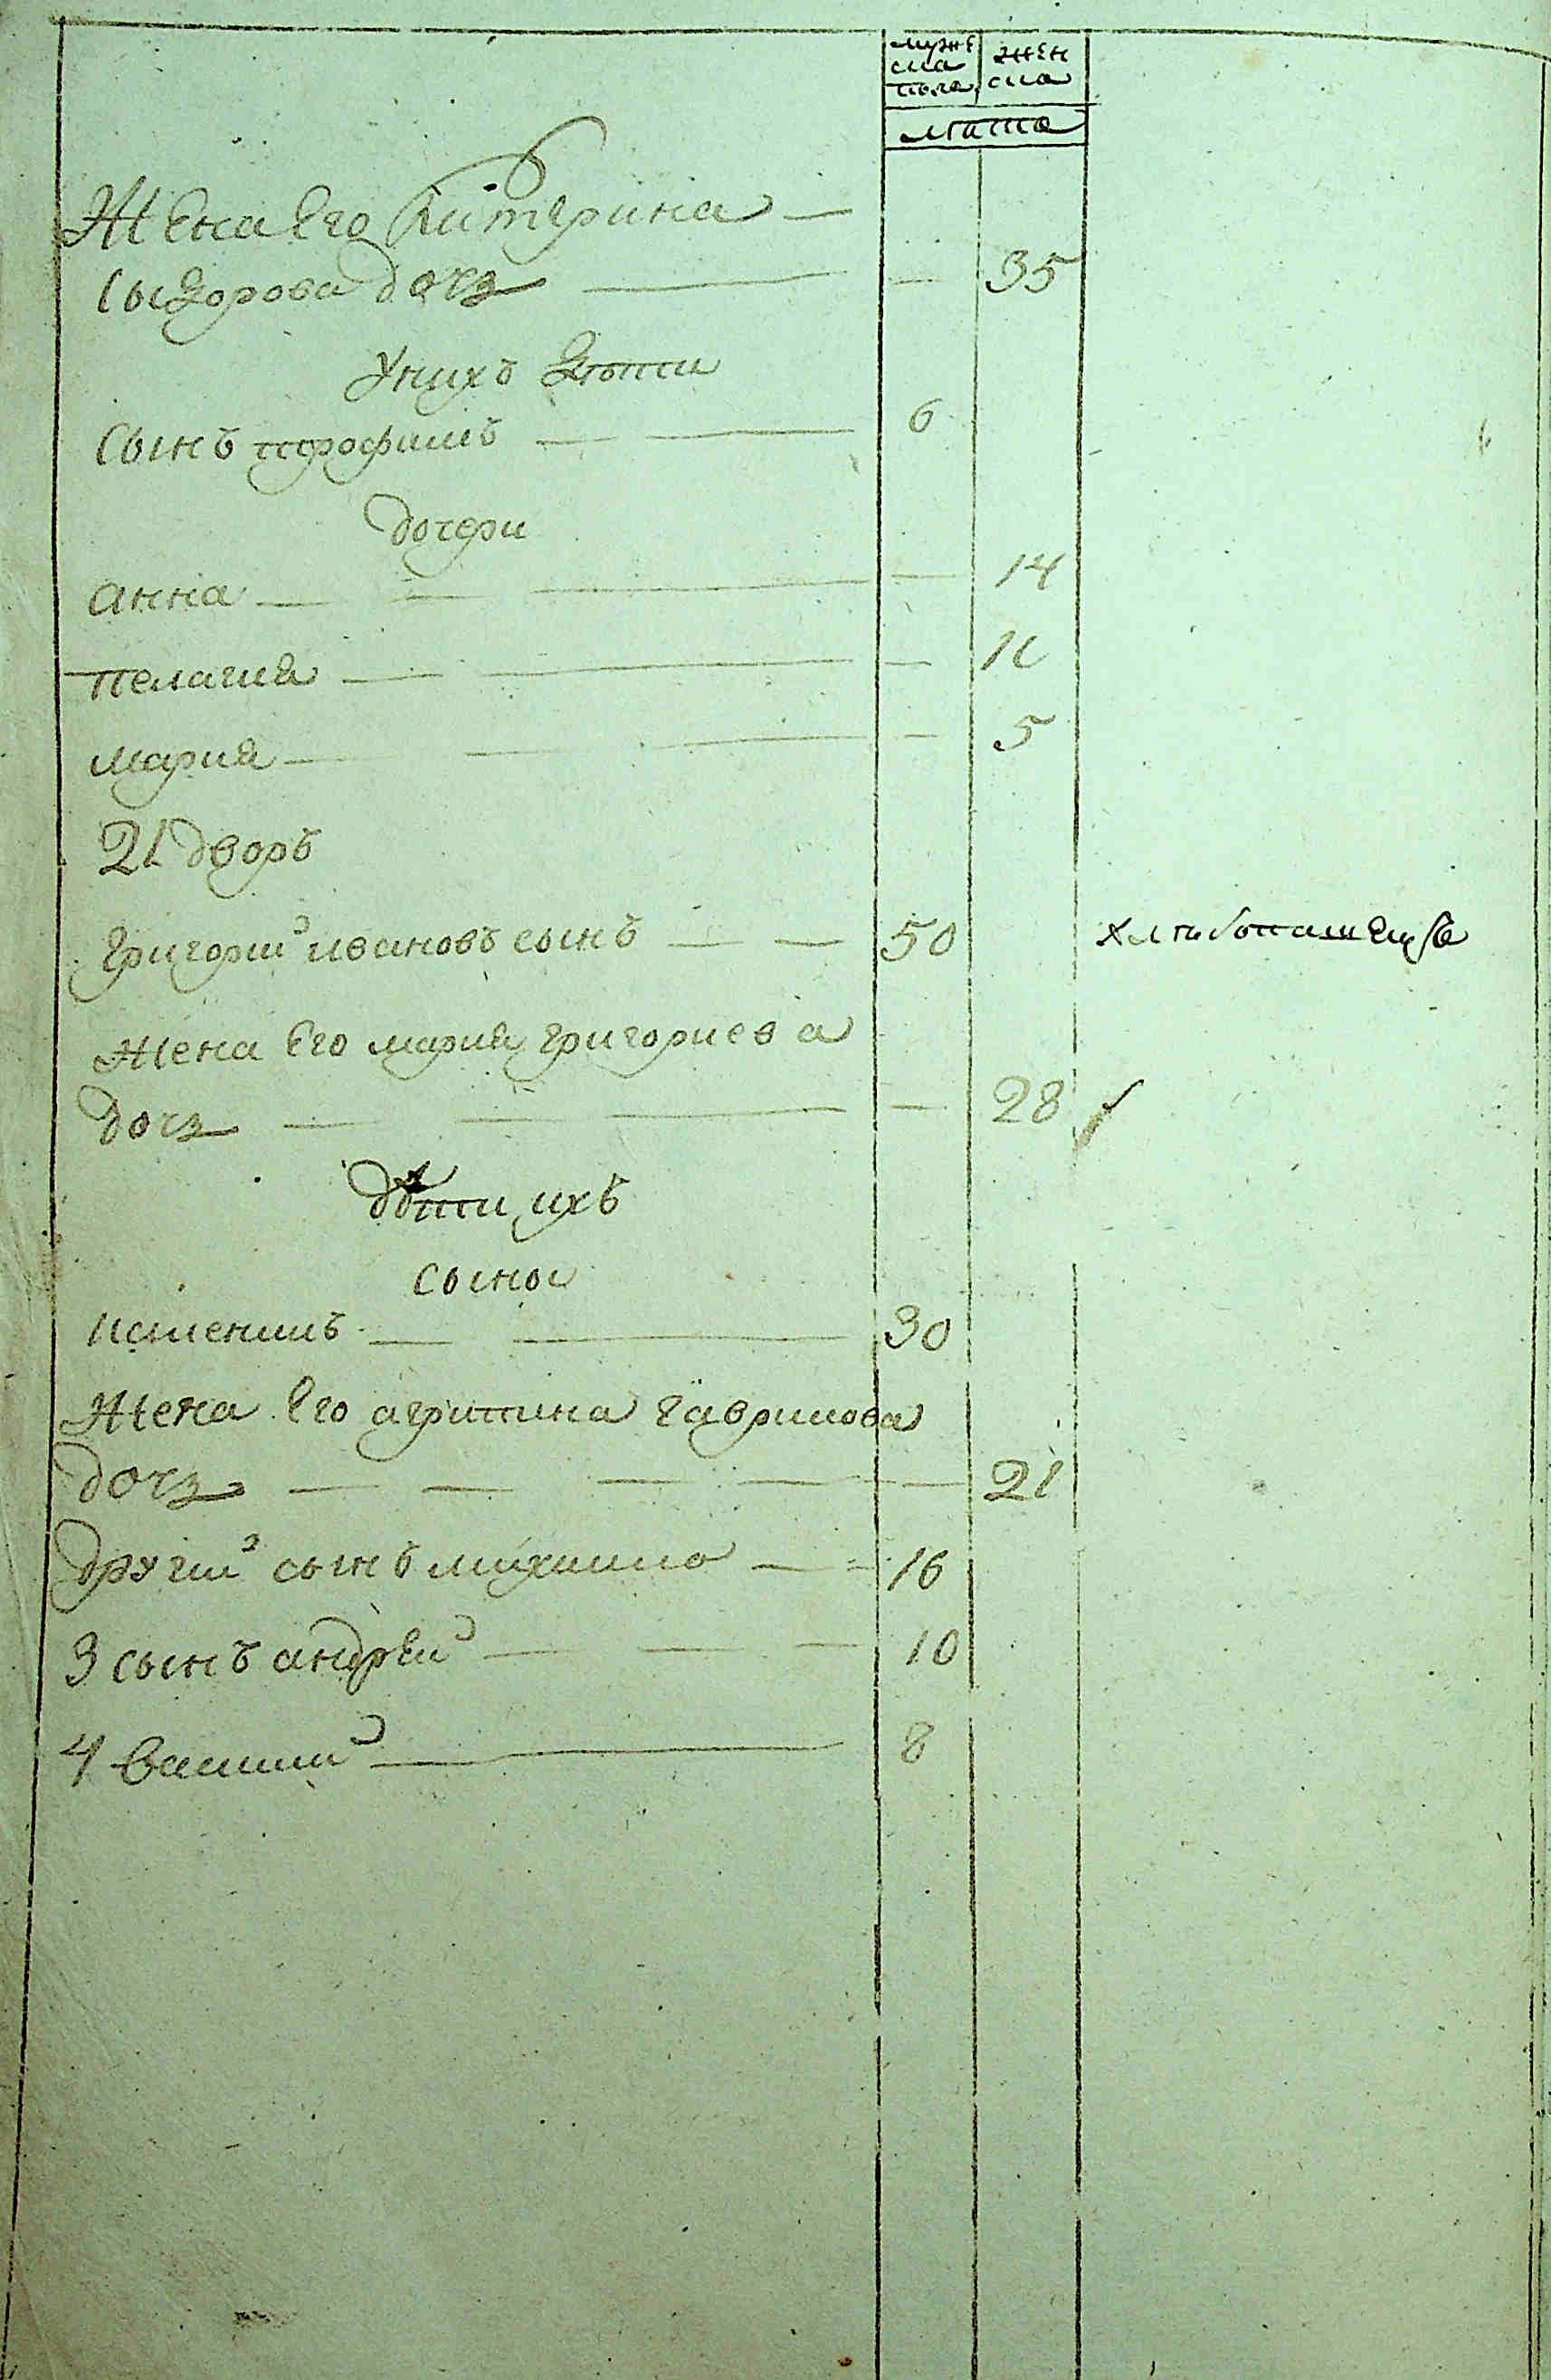 муже жен
ска ска
пола
лѣта
Жена Его Катерина —
Сыдорова дочъ — — 35
У нихъ дѣти
Сынъ трофимъ — — 6
дочери
Анна — — — — 14
пелагия — — — 11
мария — — — — 5
21 дворъ
Григорий ивановъ сынъ — — 50 хлѣбопашецъ
Жена Его мария григориева
дочъ — — — — 28
дѣти ихъ
сыны
— — 30
Жена Его агрипина гаврилова
дочъ — — — — — 21
другий сынъ михаило — — 16
3 сынъ андрей — — — 10
4 васили — 8